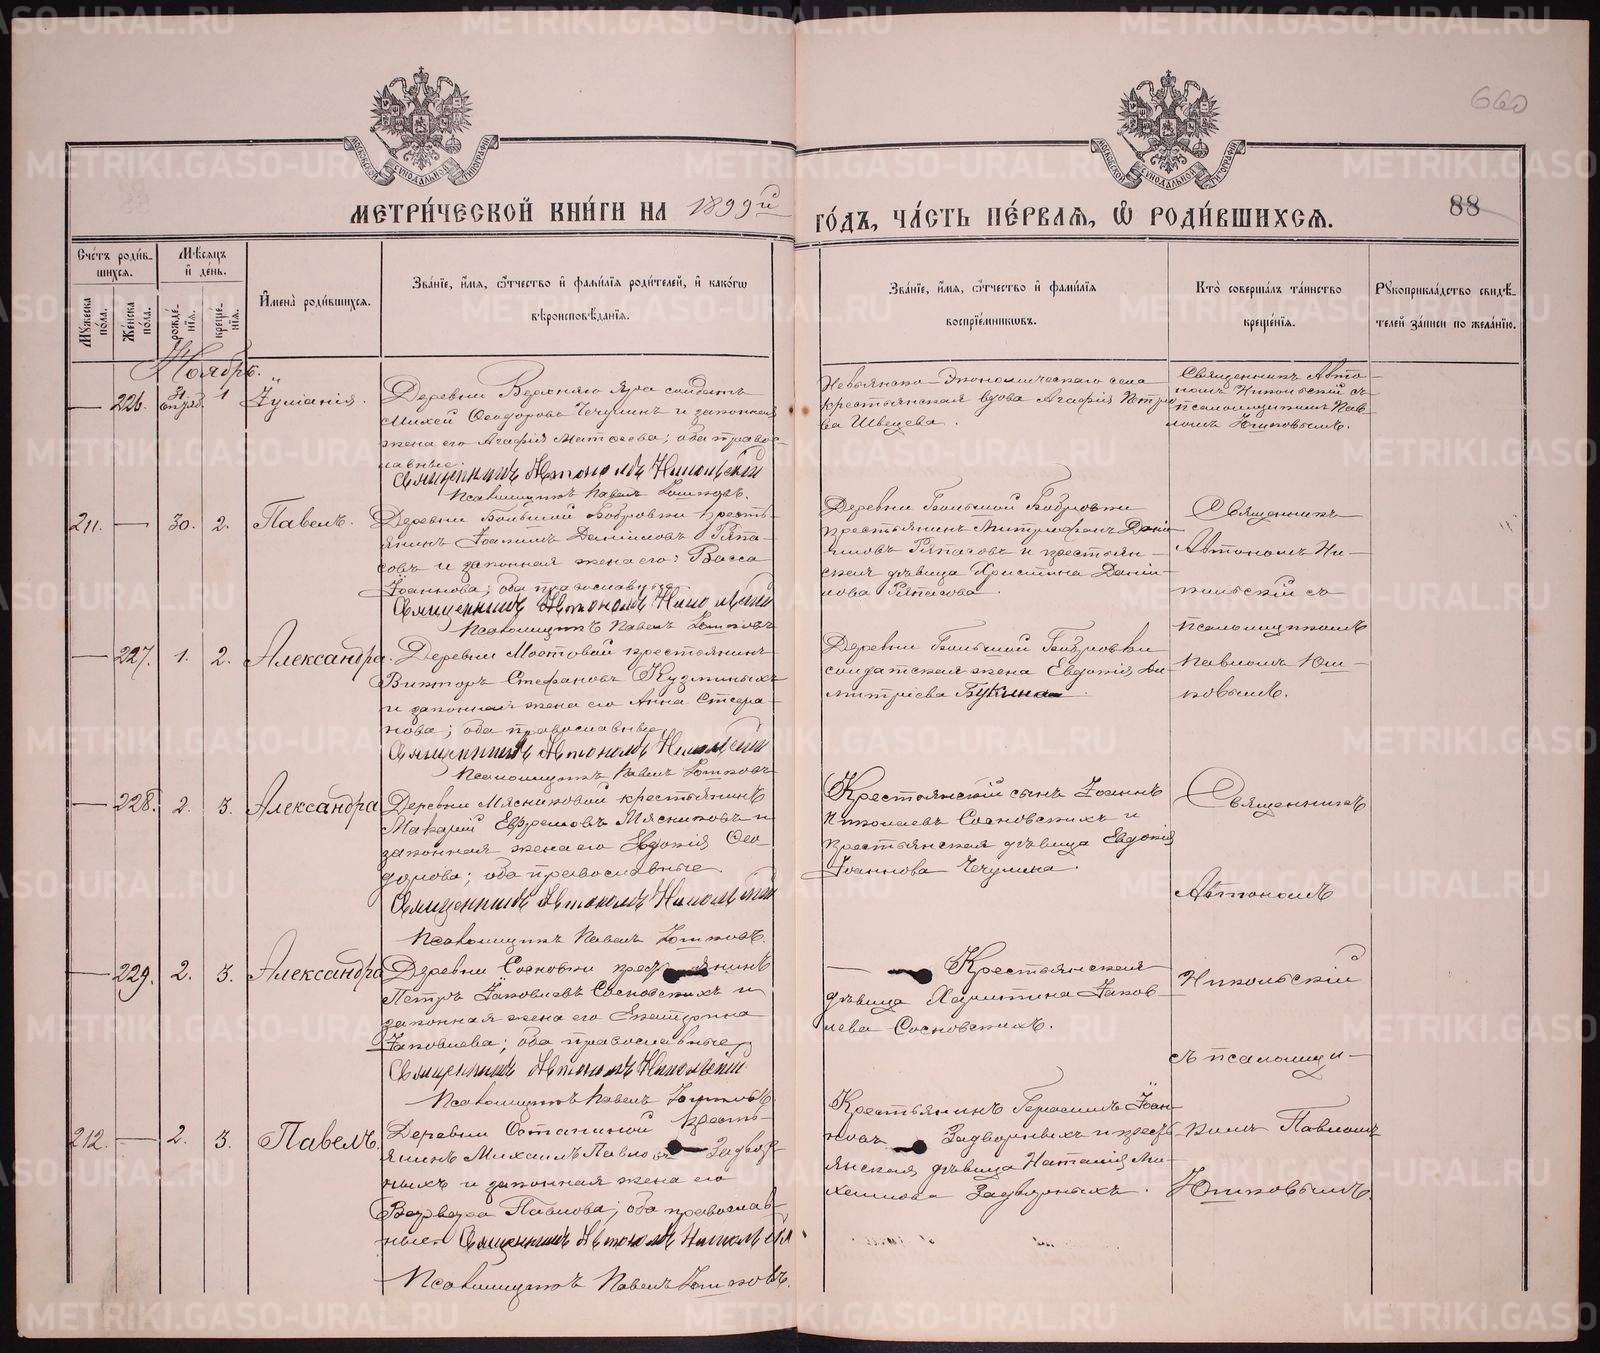 660
МЕТРИ́ЧЕСКОЙ КНИ́ГИ НА 1899й ГО́ДЪ, ЧА́СТЬ ПЕ́РВАЯ, Ѽ РОДИ́ВШИХСЯ.
88
Сче́тъ роди́вшихся.
Му́жеска по́ла.
Же́нска по́ла.
Мѣ́сяцъ и де́нь.
рожде́нїя.
креще́нїя.
Имена̀ роди́вшихся.
Зва́нїе, и́мя, ѻ҆́тчество и фами́лїя роди́телей, и како́гѡ
вѣроисповѣ́данїя.
Зва́нїе, и́мя, ѻ҆́тчество и фами́лїя
воспрїе́мникѡвъ.
Кто̀ соверша́лъ та́инство
креще́нїя.
Рꙋкоприкла́дство свидѣ́телей за́писи по жела́нїю.
Ноябрь.
226. 31 октяб. 1 Іуліанія.
Деревни Верхняго Яра солдатъ
Михей Ѳеодоровъ Чечулинъ и законная
жена его Агафія Матѳеева; оба православные.
Священникъ Автономъ Никольскій
Псаломщикъ Павелъ Юшковъ.
Невьянско-Экономическаго села
крестьянская вдова Агафія Петрова Швецова.
Священникъ Автономъ Никольскій съ
псаломщикомъ Павломъ Юшковымъ.
211. 30. 2. Павелъ.
Деревни Большой Бобровки крестьянинъ
Іоакимъ Даниловъ Ряпасовъ
и законная жена его: Васса
Іоаннова; оба православные
Священникъ Автономъ Никольскій
Псаломщикъ Павелъ Юшковъ
Деревни Большой Бобровки
крестьянинъ Митрофанъ Даніиловъ
Ряпасовъ и крестьянская
дѣвица Христина Даніилова
Ряпасова.
Священникъ
Автономъ Никольскій съ
псаломщикомъ
Павломъ Юшковымъ.
227. 1. 2. Александра.
Деревни Мостовой крестьянинъ
Викторъ Стефановъ Кузминыхъ
и законная жена его Анна
оба православные
Священникъ Автономъ Никольскій
Псаломщикъ Павелъ Юшковъ
Деревни Большой Бобровки
солдатская жена Евдокія Димитріева
Букина.
228. 2. 3. Александра
Деревни Мясниковой крестьянинъ
Макарій Ефремовъ Мясниковъ и
законная жена его Евдокія Ѳеодорова;
оба православные
Священникъ Автономъ Никольскій
Псаломщикъ Павелъ Юшковъ.
Крестьянскій сынъ Іоаннъ
Николаевъ Сосновскихъ и
крестьянская дѣвица Евдокія
Іоаннова Чечулина.
Священникъ
Автономъ
Никольскій
съ псаломщикомъ
Павломъ
Юшковымъ.
229. 2. 3. Александра
Деревни Сосновки крестьянинъ
Петръ Іаковлевъ Сосновскихъ и
законная жена его Екатерина
Іаковлева; оба православные
Священникъ Автономъ Никольскій
Псаломщикъ Павелъ Юшковъ
Крестьянская
дѣвица Харитина Іаковлева
Сосновскихъ.
212. 2. 3. Павелъ
Деревни Останиной крестьянинъ
Михаилъ Павловъ Задворныхъ
и законная жена его
Варвара Павлова; оба православные
Священникъ Автономъ Никольскій
Псаломщикъ Павелъ Юшковъ.
Крестьянинъ Герасимъ Іоанновъ
Задворныхъ и крестьянская
дѣвица Наталія Михеилова
Задворныхъ.
METRIKI.GASO-URAL.RU